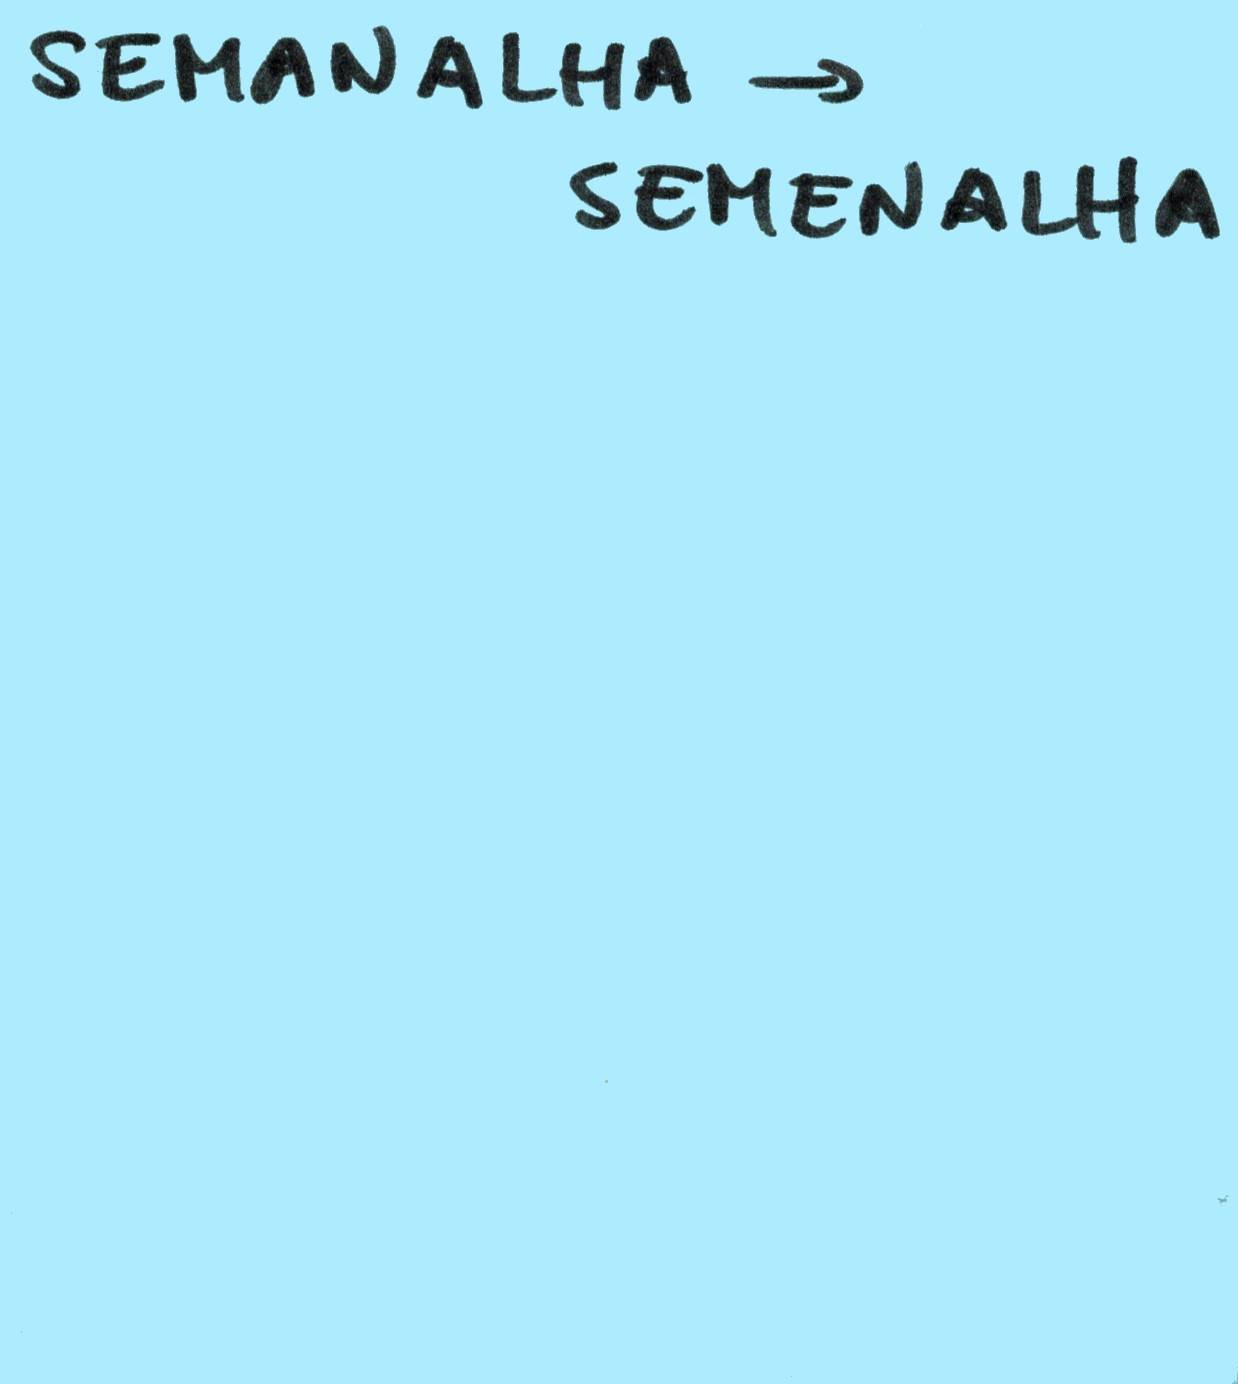 SEMANALHA →
SEMENALHA